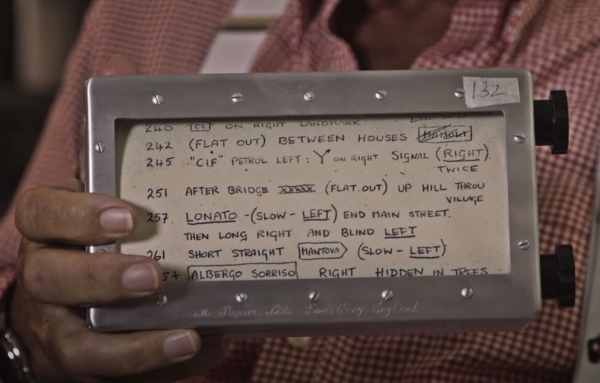 132
240 [CC] ON RIGHT LANDMARK
242 (FLAT OUT) BETWEEN HOUSES
245 "CIF" PETROL LEFT : Y ON RIGHT SIGNAL (RIGHT)
TWICE
251 AFTER BRIDGE XXXXX (FLAT OUT) UP HILL THROU
VILLAGE
257 LONATO - (SLOW - LEFT) END MAIN STREET.
THEN LONG RIGHT AND BLIND LEFT
261 SHORT STRAIGHT MANTOVA (SLOW - LEFT)
5+ ALBERGO SORRISO RIGHT HIDDEN IN TREES
England